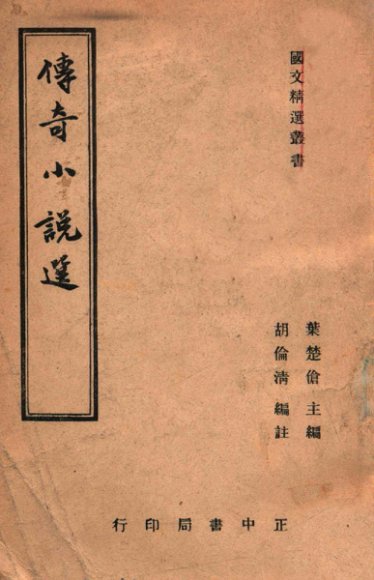 國文精選叢書
傳奇小說選
葉楚傖主編
胡倫清編註
正中書局印行